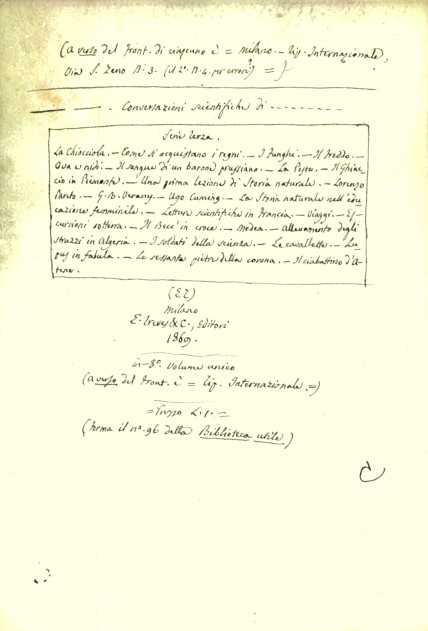 (a verso del front. di ciascuno è = Milano. - Tip. Internazionale,
Via S. Zeno N. 3. (il 2° N. 4. per errore?) =)
— . Conversazioni scientifiche di ---------
Serie terza.
La Chiocciola. - Come si acquistano i regni. - I Funghi. - Il Freddo. -
Ova e nidi. - Il sangue di un barone prussiano. - La Peste. - Il Ghiac-
cio in Piemonte. - Una prima lezione di Storia naturale. - Lorenzo
Pareto. - G. B. Verany. - Ugo Cuming. - La Storia naturale nell'edu-
cazione femminile. - Letture scientifiche in Francia. - Viaggi. - Es-
cursioni sotterra. - Il Becc' in croce. - Medea. - Allevamento degli
struzzi in Algeria. - I soldati della scienza. - Le cavallette. - Lu-
pus in fabula. - Le sessanta pietre della corona. - Il ciabattino d'A-
tene.
(ET)
Milano
E. Treves & C., Editori
1869.
in-8°. Volume unico
(a verso del front. è = Tip. Internazionale. =)
= Prezzo L. 1. =
(Forma il n°. 96 della Biblioteca utile)